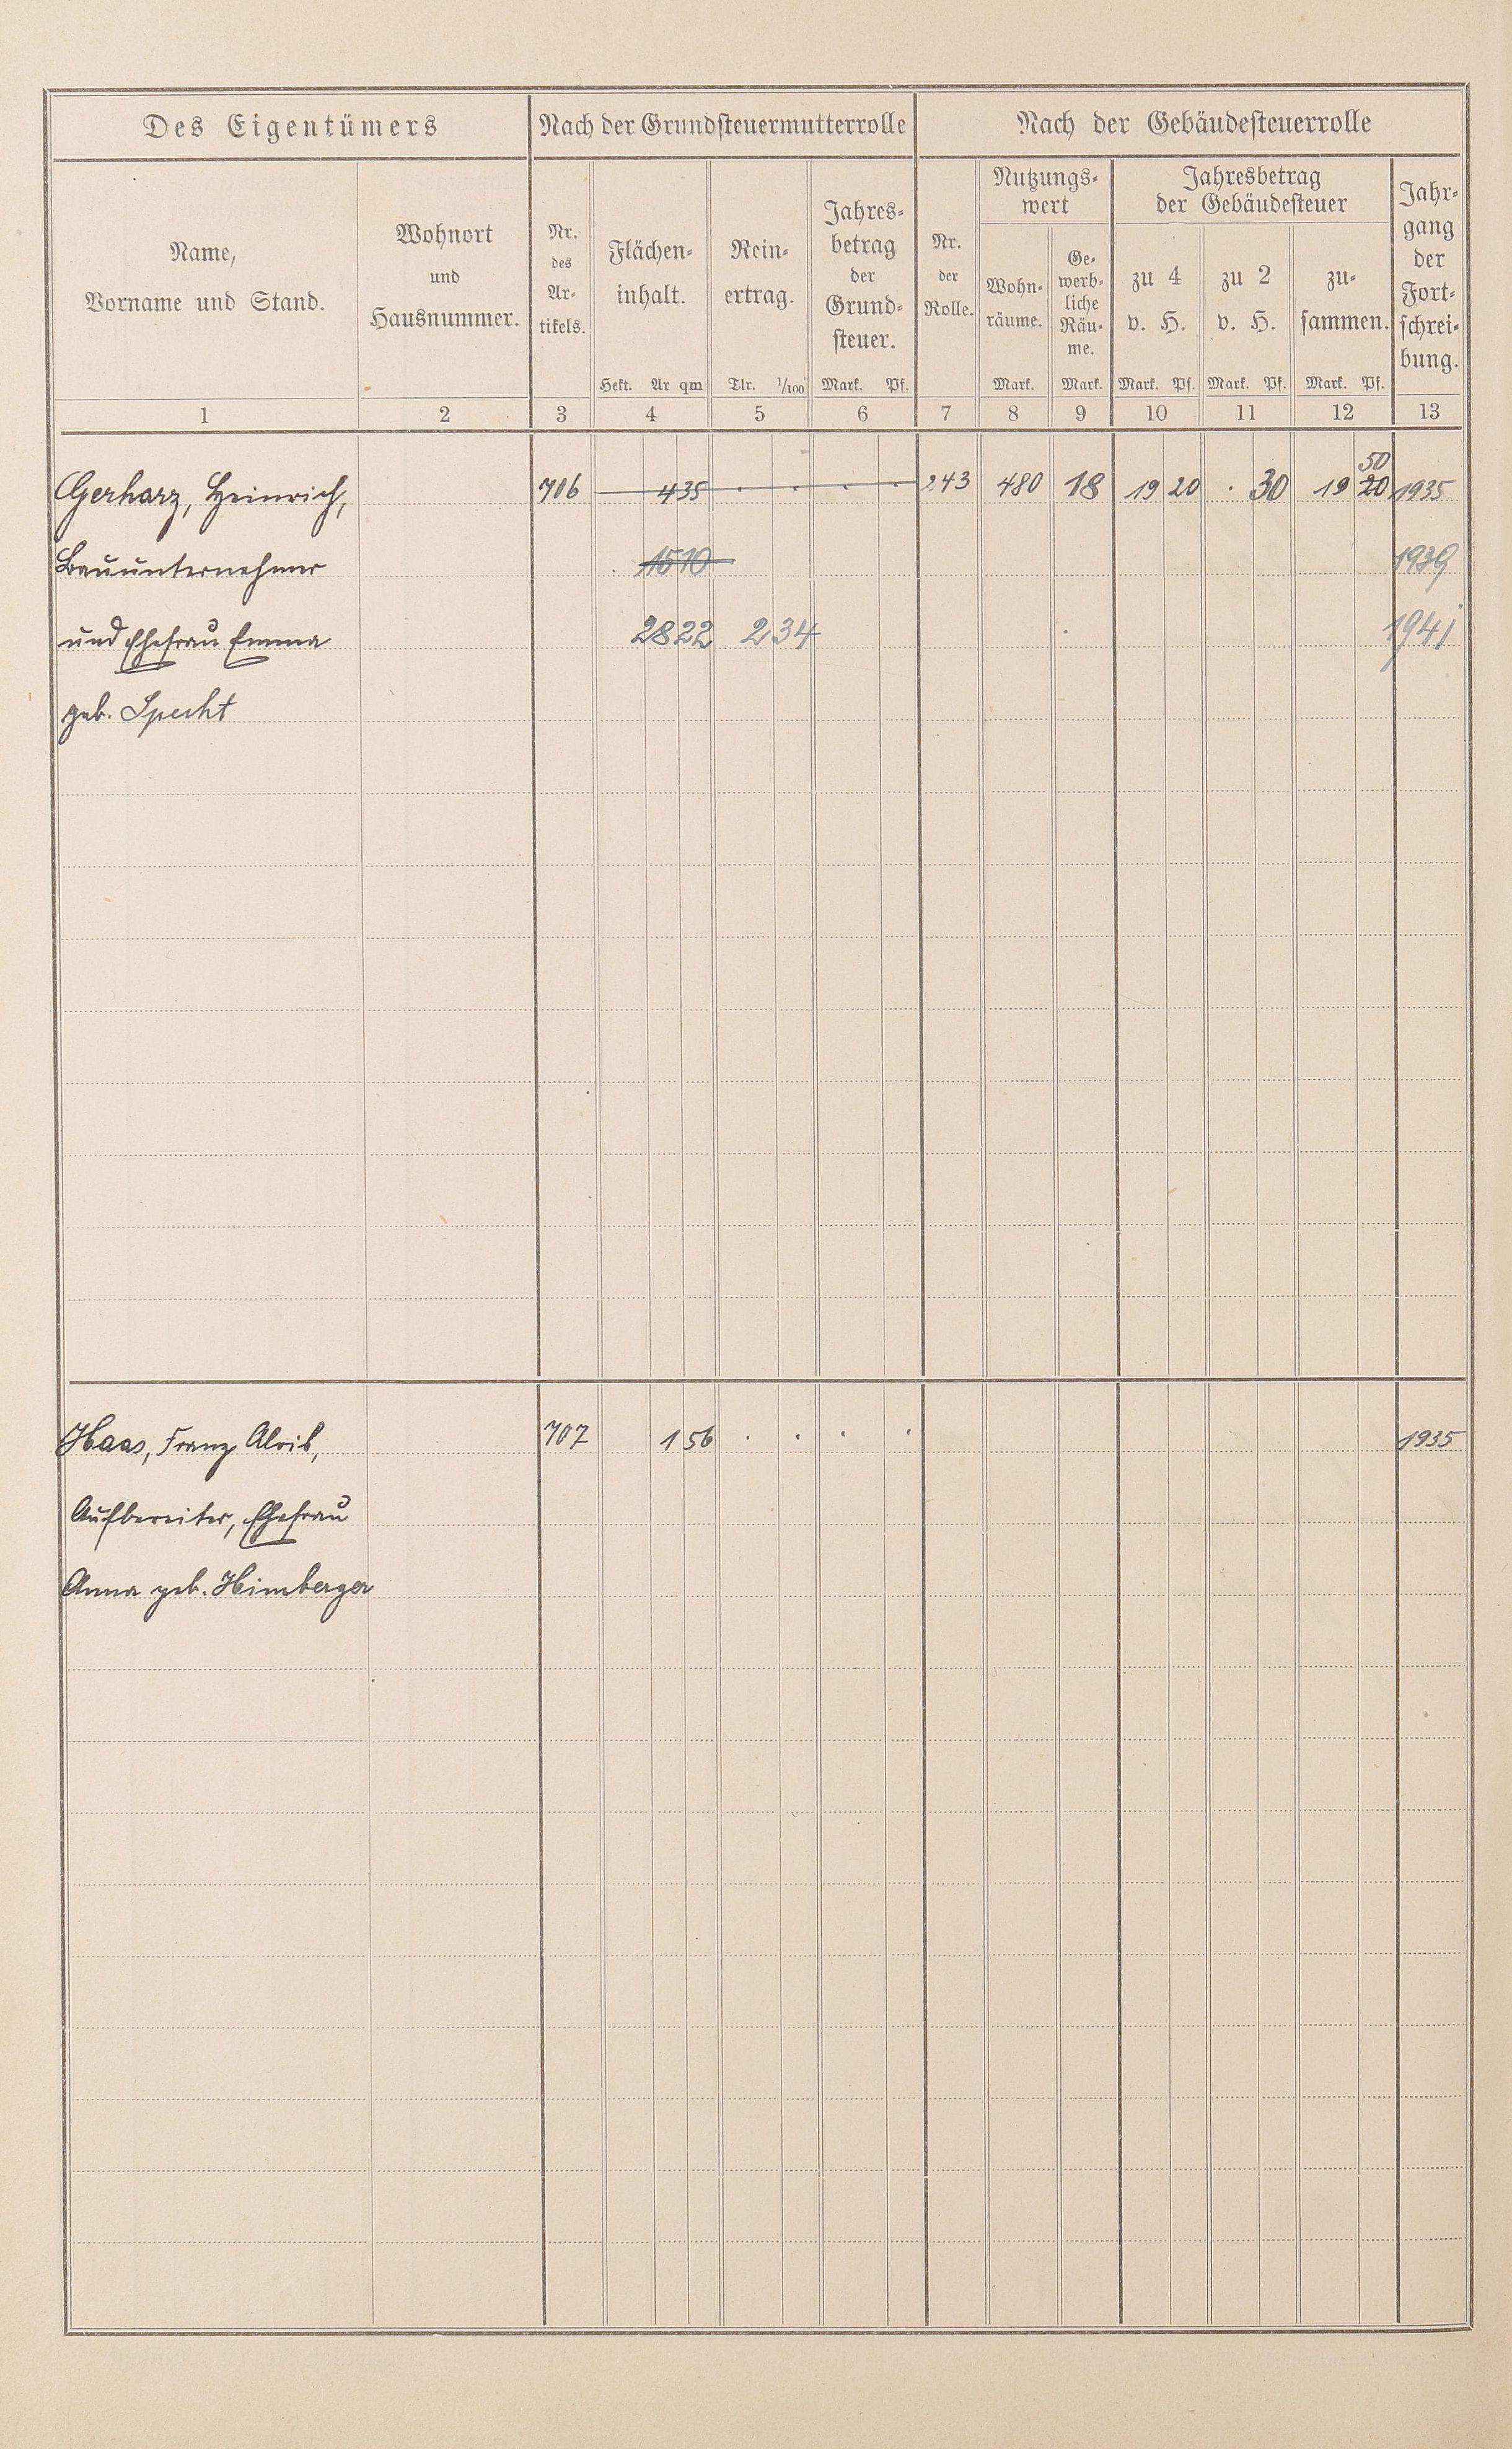 Des Eigentümers Nach der Grundsteuermutterrolle Nach der Gebäudesteuerrolle
Name,
Vorname und Stand.
Wohnort
und
Hausnummer.
Nr.
des
Ar-
tikels.
Flächen-
inhalt.
Hekt. Ar qm
Rein-
ertrag.
Tlr. 1/100
Jahres-
betrag
der
Grund-
steuer.
Mark. Pf.
Nr.
der
Rolle.
Nutzungs-
wert
Wohn-
räume.
Mark.
Ge-
werb-
liche
Räu-
me.
Mark.
Jahresbetrag
der Gebäudesteuer
zu 4
v. H.
Mark. Pf.
zu 2
v. H.
Mark. Pf.
zu-
sammen.
Mark. Pf.
Jahr-
gang
der
Fort-
schrei-
bung.
1 2 3 4 5 6 7 8 9 10 11 12 13
50
Gerharz, Heinrich, 706 4 35 . . . . 243 480 18 19 20 . 30 19 20 1935
Bauunternehmer 15 10 1939
und Ehefrau Emma 28 22 2 34 1941
geb. Specht
Haas, Franz Alois, 707 1 56 . . . . 1935
Aufbereiter, Ehefrau
Anna geb. Himberger